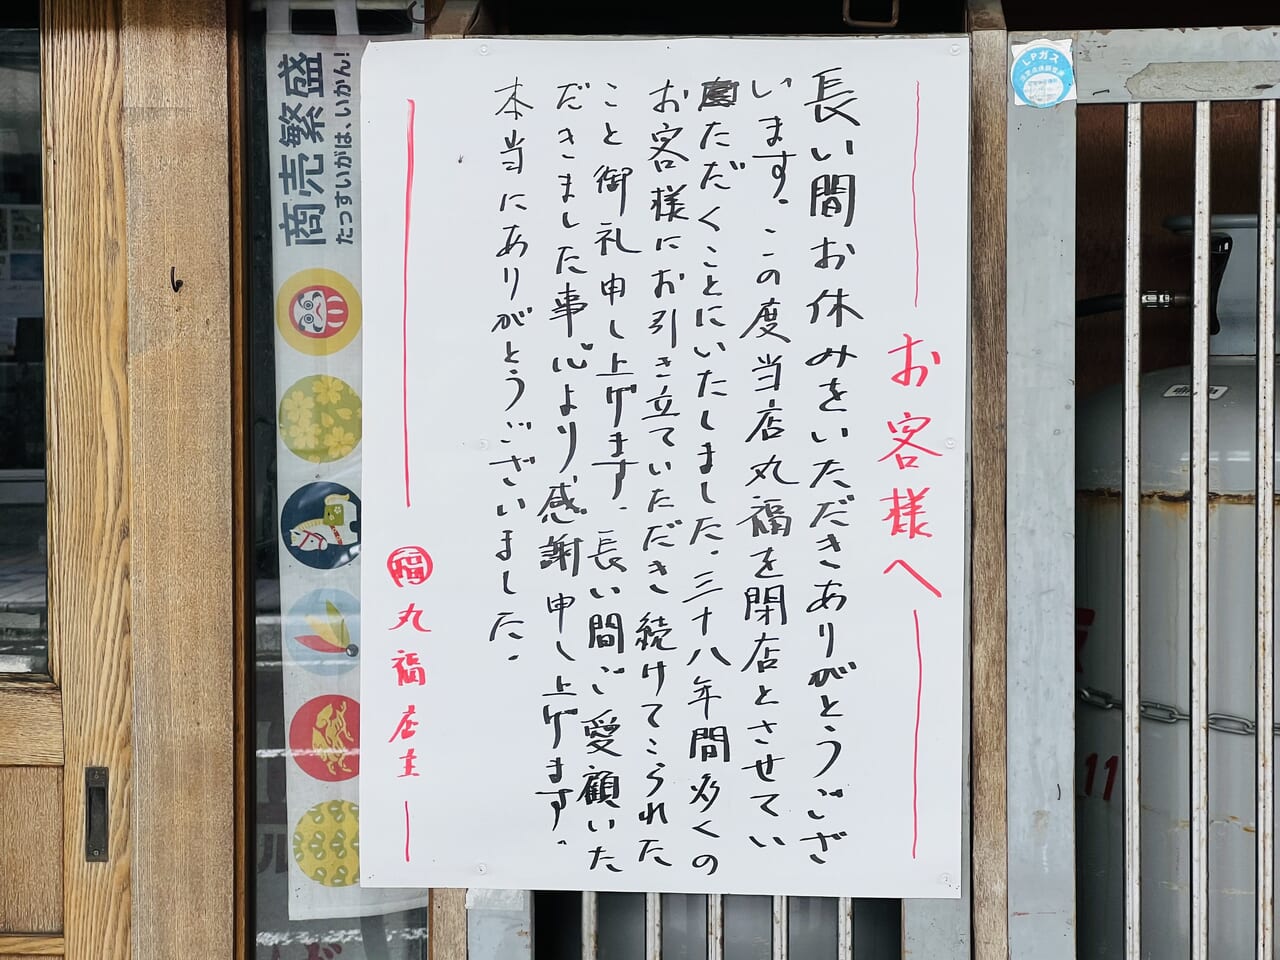 お客様へ
長い間お休みをいただきありがとうござ
います。この度当店丸福を閉店とさせてい
ただくことにいたしました。三十八年間多くの
お客様にお引き立ていただき続けてこられた
こと御礼申し上げます。長い間ご愛顧いた
だきました事心より感謝申し上げます。
本当にありがとうございました。
福 丸福店主
商売繁盛
たっすいがは、いかん!
LPガス
11